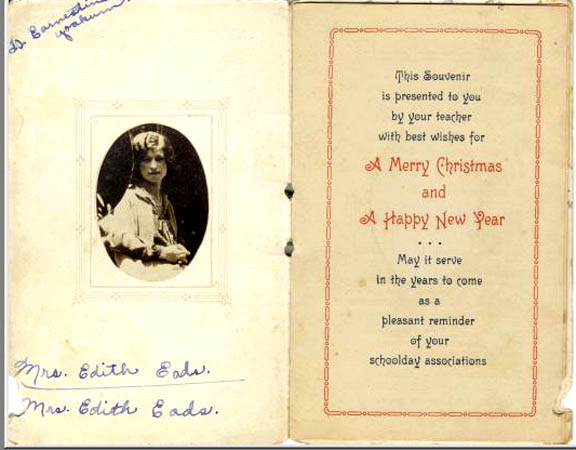 Earnestine
Yoakum
Mrs. Edith Eads.
Mrs. Edith Eads.
This Souvenir
is presented to you
by your teacher
with best wishes for
A Merry Christmas
and
A Happy New Year
...
May it serve
in the years to come
as a
pleasant reminder
of your
schoolday associations